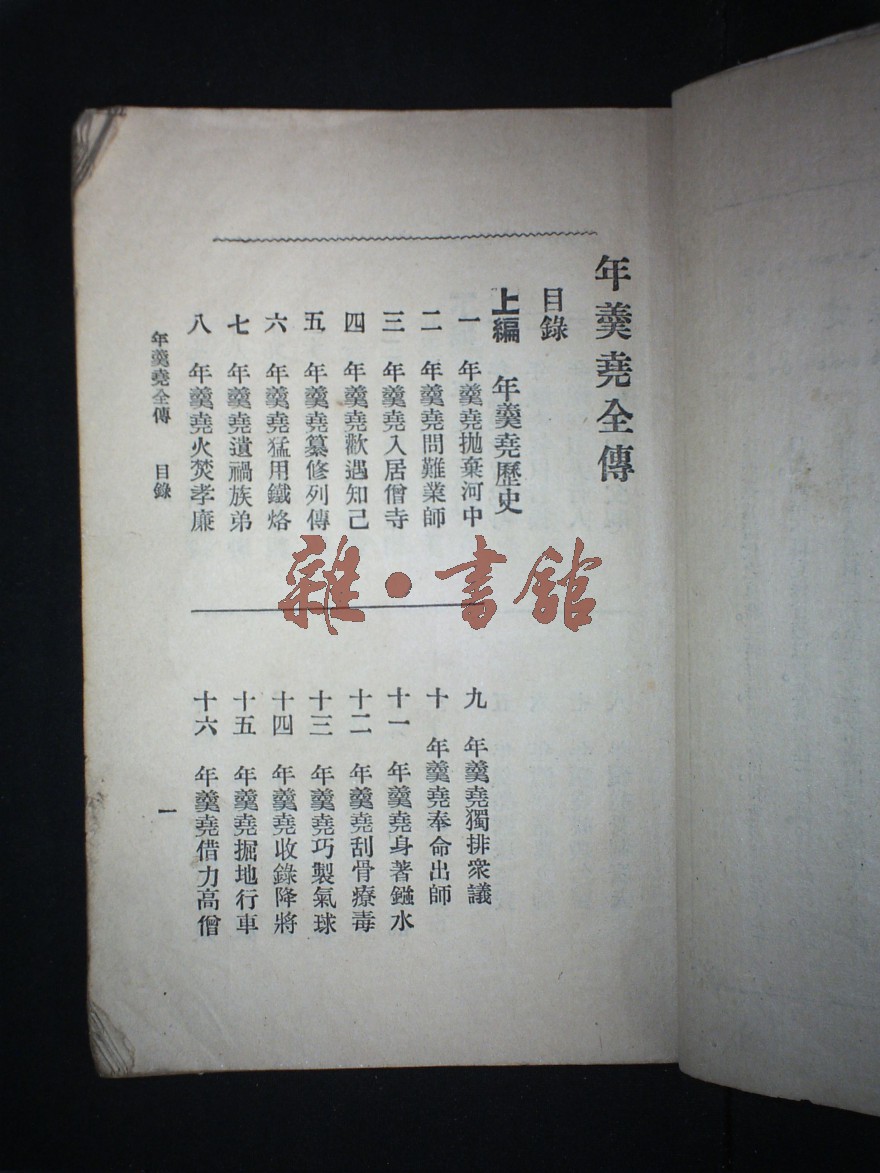 年羹堯全傳
目錄
上編 年羹堯歷史
一 年羹堯拋棄河中
二 年羹堯問難業師
三 年羹堯入居僧寺
四 年羹堯歡遇知己
五 年羹堯纂修列傳
六 年羹堯猛用鐵烙
七 年羹堯遺禍族弟
八 年羹堯火焚孝廉
九 年羹堯獨排衆議
十 年羹堯奉命出師
十一 年羹堯身著鏹水
十二 年羹堯刮骨療毒
十三 年羹堯巧製氣球
十四 年羹堯收錄降將
十五 年羹堯掘地行車
十六 年羹堯借力高僧
年羹堯全傳 目錄 一
雜·書館